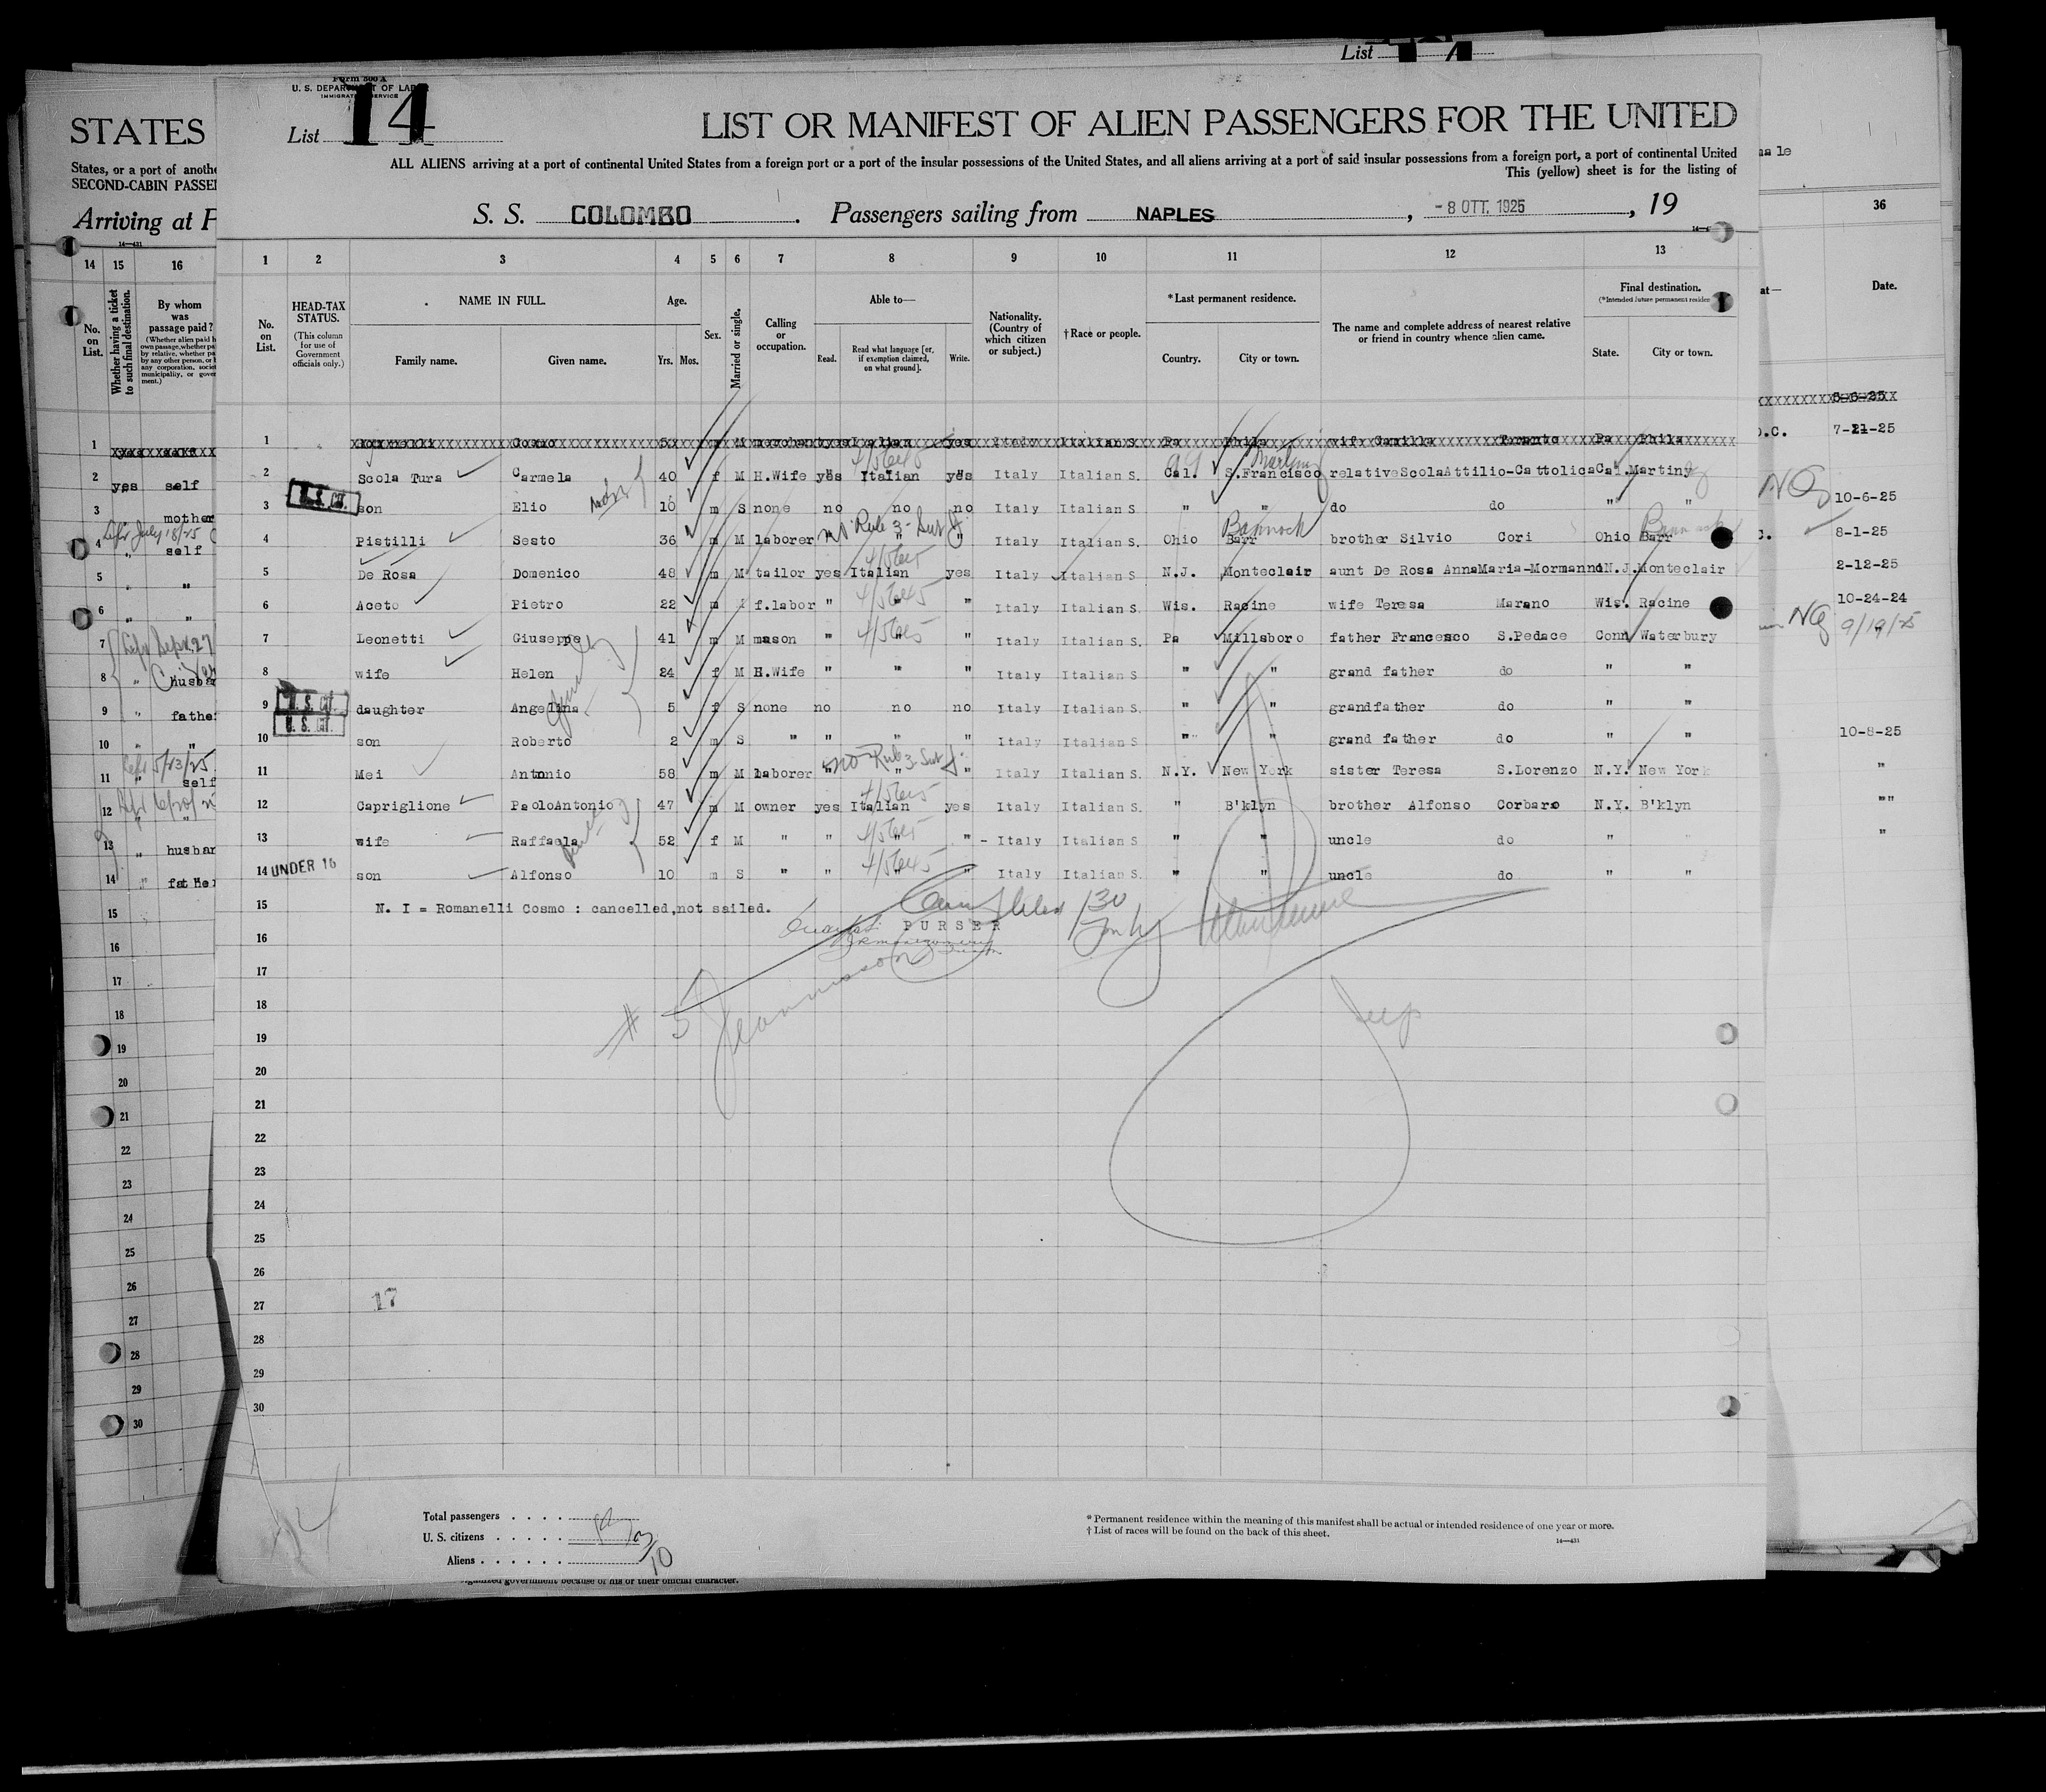 List
Form 500 A
U. S. DEPARTMENT OF LABOR
IMMIGRATION SERVICE
List 14
STATES
LIST OR MANIFEST OF ALIEN PASSENGERS FOR THE UNITED
States, or a port of anothe
SECOND-CABIN PASSE
ALL ALIENS arriving at a port of continental United States from a foreign port or a port of the insular possessions of the United States, and all aliens arriving at a port of said insular possessions from a foreign port, a port of continental United
This (yellow) sheet is for the listing of
Arriving at P
S. S. COLOMBO. Passengers sailing from NAPLES, -8 OTT. 1925, 19
14 15 16 1 2 3 4 5 6 7 8 9 10 11 12 13 36
No. on List.
Whether having a ticket to such final destination.
By whom was passage paid?
No. on List.
HEAD-TAX STATUS.
(This column for use of Government officials only.)
NAME IN FULL.
Family name. Given name.
Age.
Yrs. Mos.
Sex.
Married or single.
Calling or occupation.
Able to—
Read. Read what language [or, if exemption claimed, on what ground]. Write.
Nationality. (Country of which citizen or subject.)
†Race or people.
*Last permanent residence.
Country. City or town.
The name and complete address of nearest relative or friend in country whence alien came.
Final destination.
(*Intended future permanent residen
State. City or town.
Date.
1 Romanelli Cosmo 52 m M merchant yes Italian yes Italy Italian S. Pa Phila wife Camilla Toranto Pa Phila 5-6-25
2 yes self 2 Scola Tura Carmela 40 f M H.Wife yes Italian yes Italy Italian S. Cal. S.Francisco Martiny relative Scola Attilio-Cattolica Cal. Martiny 7-21-25
3 mother 3 U. S. Cit. son Elio 10 m S none no no no Italy Italian S. " " do do " " NG 10-6-25
4 " self 4 Pistilli Sesto 36 m M laborer no Rule 3 - Sub J. " " Italy Italian S. Ohio Barr Bannock brother Silvio Cori Ohio Barr Bannock 8-1-25
5 " " 5 De Rosa Domenico 48 m M tailor yes Italian yes Italy Italian S N.J. Monteclair aunt De Rosa AnnaMaria-Mormanno N.J. Monteclair 2-12-25
6 " " 6 Aceto Pietro 22 m M f.labor " " " Italy Italian S. Wis. Racine wife Teresa Marano Wis. Racine 10-24-24
7 7 Leonetti Giuseppe 41 m M mason " " " Italy Italian S. Pa Millsboro father Francesco S.Pedace Conn Waterbury NG 9/19/25
8 " husba 8 wife Helen 24 f M H.Wife " " " Italy Italian S. " " grand father do " "
9 " fathe 9 U. S. Cit. daughter Angelina 5 f S none no no no Italy Italian S. " " grandfather do " "
10 " " 10 U. S. Cit. son Roberto 2 m S " " " " Italy Italian S " " grand father do " " 10-8-25
11 " self 11 Mei Antonio 58 m M laborer no Rule 3 Sub J. " " Italy Italian S. N.Y. New York sister Teresa S.Lorenzo N.Y. New York "
12 " " 12 Capriglione PaoloAntonio 47 m M owner yes Italian yes Italy Italian S. " B'klyn brother Alfonso Corbara N.Y. B'klyn ""
13 " husban 13 wife Raffaela 52 f M " " " " - Italy Italian S " " uncle do " " "
14 " father 14 UNDER 16 son Alfonso 10 m S " " " " Italy Italian S. " " uncle do " "
15 15 N. I = Romanelli Cosmo : cancelled,not sailed.
PURSER
16 16
17 17
18 18
# 5
19 19
20 20
21 21
22 22
23 23
24 24
25 25
26 26
27 27
17
28 28
29 29
30 30
Total passengers . . . .
U. S. citizens . . . . . 3
Aliens . . . . . . 10
* Permanent residence within the meaning of this manifest shall be actual or intended residence of one year or more.
† List of races will be found on the back of this sheet.
14—431
organized government because of his or their official character.